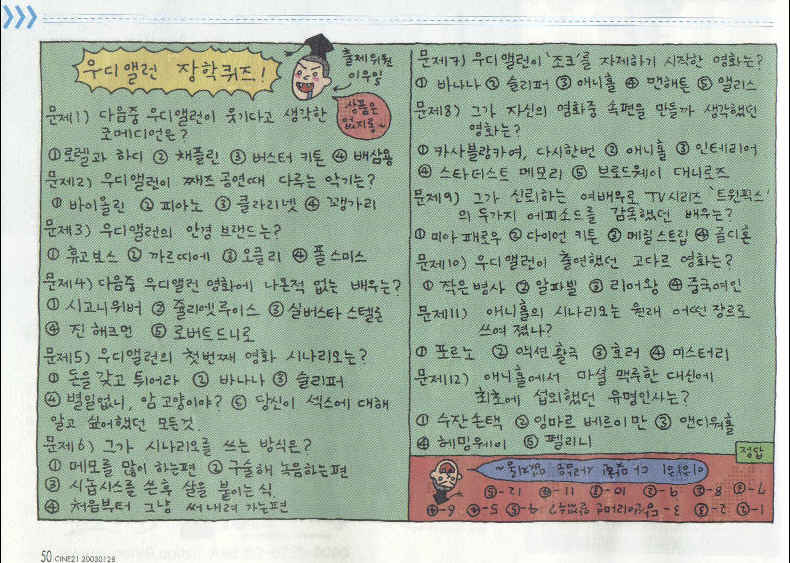 우디앨런 장학퀴즈!
출제위원
이우일
상품은
없지롱~
문제1) 다음중 우디앨런이 웃기다고 생각한
코메디언은?
① 로렐과 하디 ② 채플린 ③ 버스터 키튼 ④ 배삼룡
문제2) 우디앨런이 째즈 공연때 다루는 악기는?
① 바이올린 ② 피아노 ③ 클라리넷 ④ 꽹가리
문제3) 우디앨런의 안경 브랜드는?
① 휴고보스 ② 까르띠에 ③ 오클리 ④ 폴스미스
문제4) 다음중 우디앨런 영화에 나온적 없는 배우는?
① 시고니위버 ② 쥴리엣루이스 ③ 실버스타 스텔론
④ 진 해크먼 ⑤ 로버트드니로
문제5) 우디앨런의 첫번째 영화 시나리오는?
① 돈을 갖고 튀어라 ② 바나나 ③ 슬리퍼
④ 별일없니, 암고양이야? ⑤ 당신이 섹스에 대해
알고 싶어했던 모든것.
문제6) 그가 시나리오를 쓰는 방식은?
① 메모를 많이 하는편 ② 구술해 녹음하는편
③ 시놉시스를 쓴후 살을 붙이는 식
④ 처음부터 그냥 써내려 가는편
문제7) 우디앨런이 '조크'를 자제하기 시작한 영화는?
① 바나나 ② 슬리퍼 ③ 애니홀 ④ 맨해튼 ⑤ 앨리스
문제8) 그가 자신의 영화중 속편을 만들까 생각했던
영화는?
① 카사블랑카여, 다시한번 ② 애니홀 ③ 인테리어
④ 스타더스트 메모리 ⑤ 브로드웨이 대니로즈
문제9) 그가 신뢰하는 여배우로 TV시리즈 '트윈픽스'
의 두가지 에피소드를 감독했던 배우는?
① 미아패로우 ② 다이언 키튼 ③ 메릴스트립 ④ 골디혼
문제10) 우디앨런이 출연했던 고다르 영화는?
① 작은병사 ② 알파빌 ③ 리어왕 ④ 중국여인
문제11) 애니홀의 시나리오는 원래 어떤 장르로
쓰여 졌나?
① 포르노 ② 액션활극 ③ 호러 ④ 미스터리
문제12) 애니홀에서 마셜 맥루한 대신에
최초에 섭외했던 유명인사는?
① 수잔손택 ② 잉마르 베르이만 ③ 앤디워홀
④ 헤밍웨이 ⑤ 펠리니
정답
50 CINE21 20030128